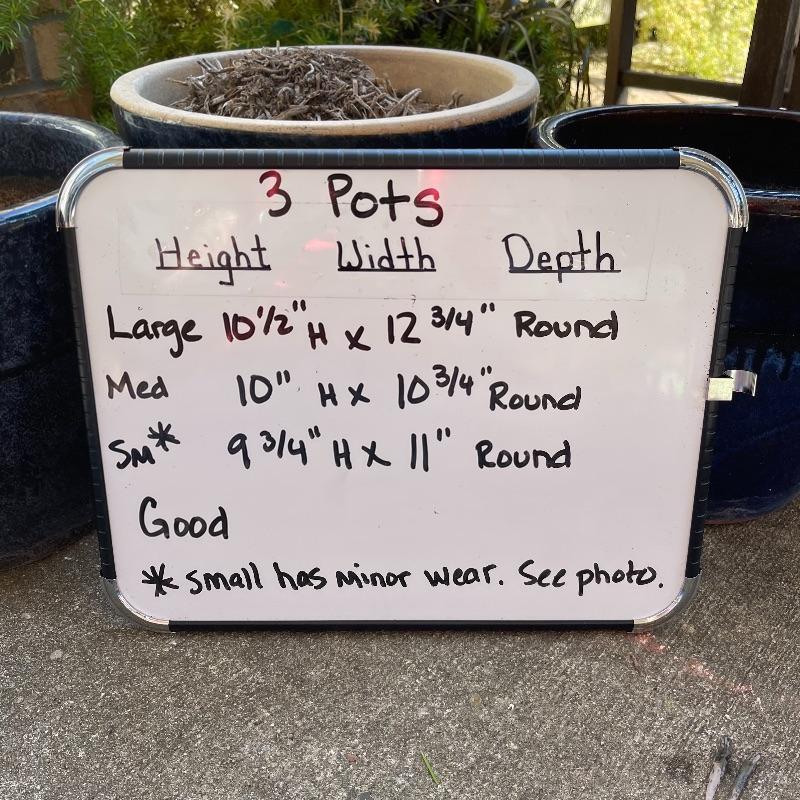 3 Pots
Height Width Depth
Large 10 1/2" H x 12 3/4" Round
Med 10" H x 10 3/4" Round
Sm* 9 3/4" H x 11" Round
Good
* small has minor wear. See photo.